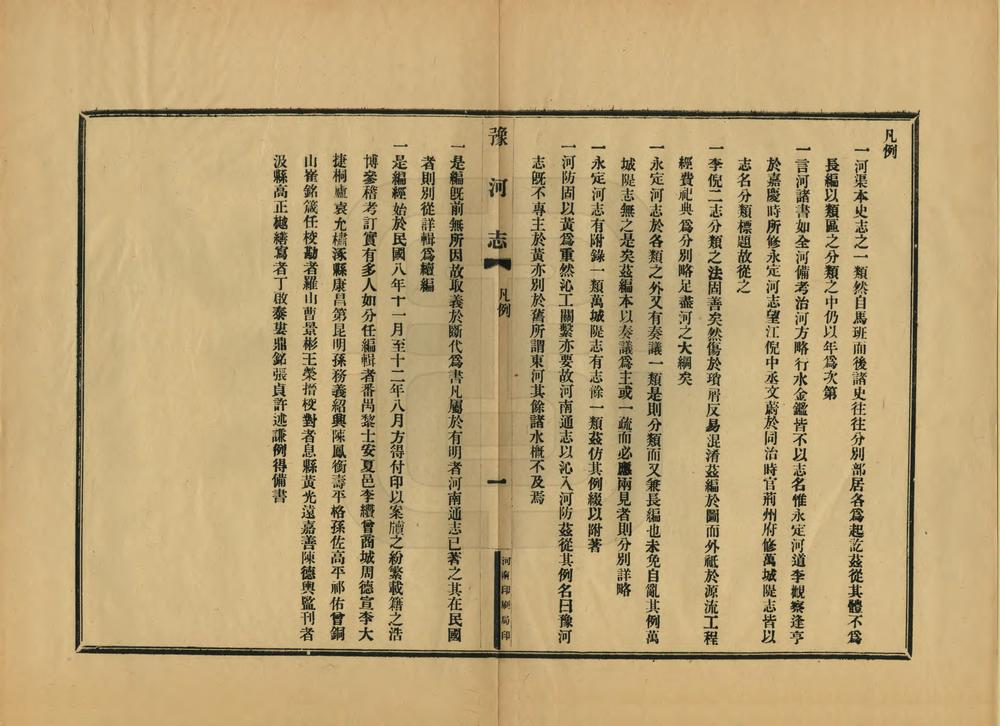 凡例
一河渠本史志之一類然自馬班而後諸史往往分別部居各爲起訖茲從其體不爲
長編以類區之分類之中仍以年爲次第
一言河諸書如全河備考治河方略行水金鑑皆不以志名惟永定河道李觀察逢亨
於嘉慶時所修永定河志望江倪中丞文蔚於同治時官荊州府修萬城隄志皆以
志名分類標題故從之
一李倪二志分類之法固善矣然傷於瑣屑反易混淆茲編於圖而外祗於源流工程
經費祀典爲分別略足盡河之大綱矣
一永定河志於各類之外又有奏議一類是則分類而又兼長編也未免自亂其例萬
城隄志無之是矣茲編本以奏議爲主或一疏而必應兩見者則分別詳略
一永定河志有附錄一類萬城隄志有志餘一類茲仿其例綴以附著
一河防固以黃爲重然沁工關繫亦要故河南通志以沁入河防茲從其例名曰豫河
志既不專主於黃亦別於舊所謂東河其餘諸水槪不及焉
豫河志
凡例
一
河南印刷局印
一是編既前無所因故取義於斷代爲書凡屬於有明者河南通志已著之其在民國
者則別從詳輯爲續編
一是編經始於民國八年十一月至十二年八月方得付印以案牘之紛繁載籍之浩
博參稽考訂實有多人如分任編輯者番禺黎士安夏邑李纘曾商城周德宣李大
捷桐廬袁允櫹涿縣康昌第昆明孫務義紹興陳鳳衡壽平格孫佐高平祁佑曾銅
山崔銘箴任校勘者羅山曹景彬王榮搢校對者息縣黃光遠嘉善陳德輿監刊者
汲縣高正樾繕寫者丁啟泰婁鼎銘張貞許述謙例得備書